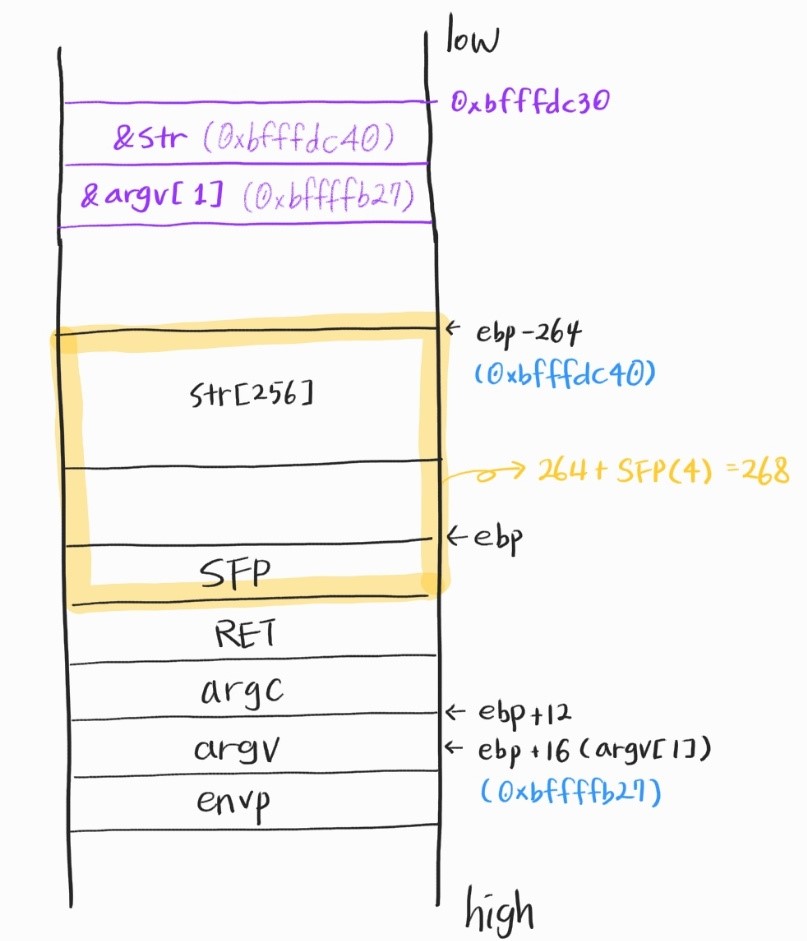 low
0xbfffdc30
&str (0xbfffdc40)
&argv[1] (0xbffffb27)
← ebp-264
(0xbfffdc40)
str[256]
264 + SFP(4) = 268
← ebp
SFP
RET
argc
← ebp+12
argv
← ebp+16 (argv[1])
(0xbffffb27)
envp
high